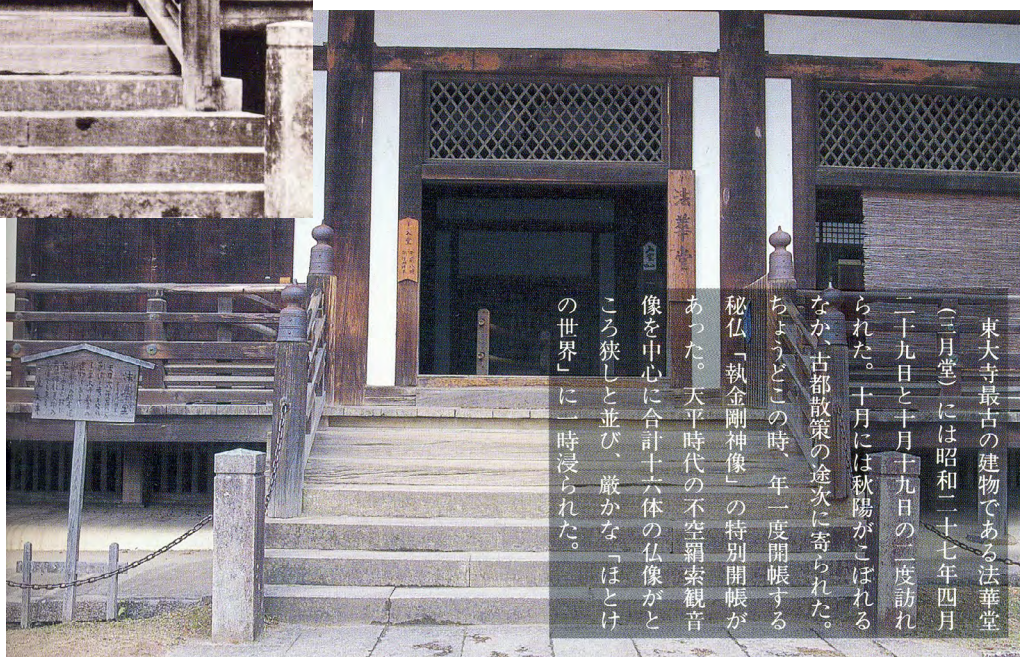 東大寺最古の建物である法華堂
(三月堂)には昭和二十七年四月
二十九日と十月十九日の二度訪れ
られた。十月には秋陽がこぼれる
なか、古都散策の途次に寄られた。
ちょうどこの時、年一度開帳する
秘仏「執金剛神像」の特別開帳が
あった。天平時代の不空羂索観音
像を中心に合計十六体の仏像がと
ころ狭しと並び、厳かな「ほとけ
の世界」に一時浸られた。
法華堂